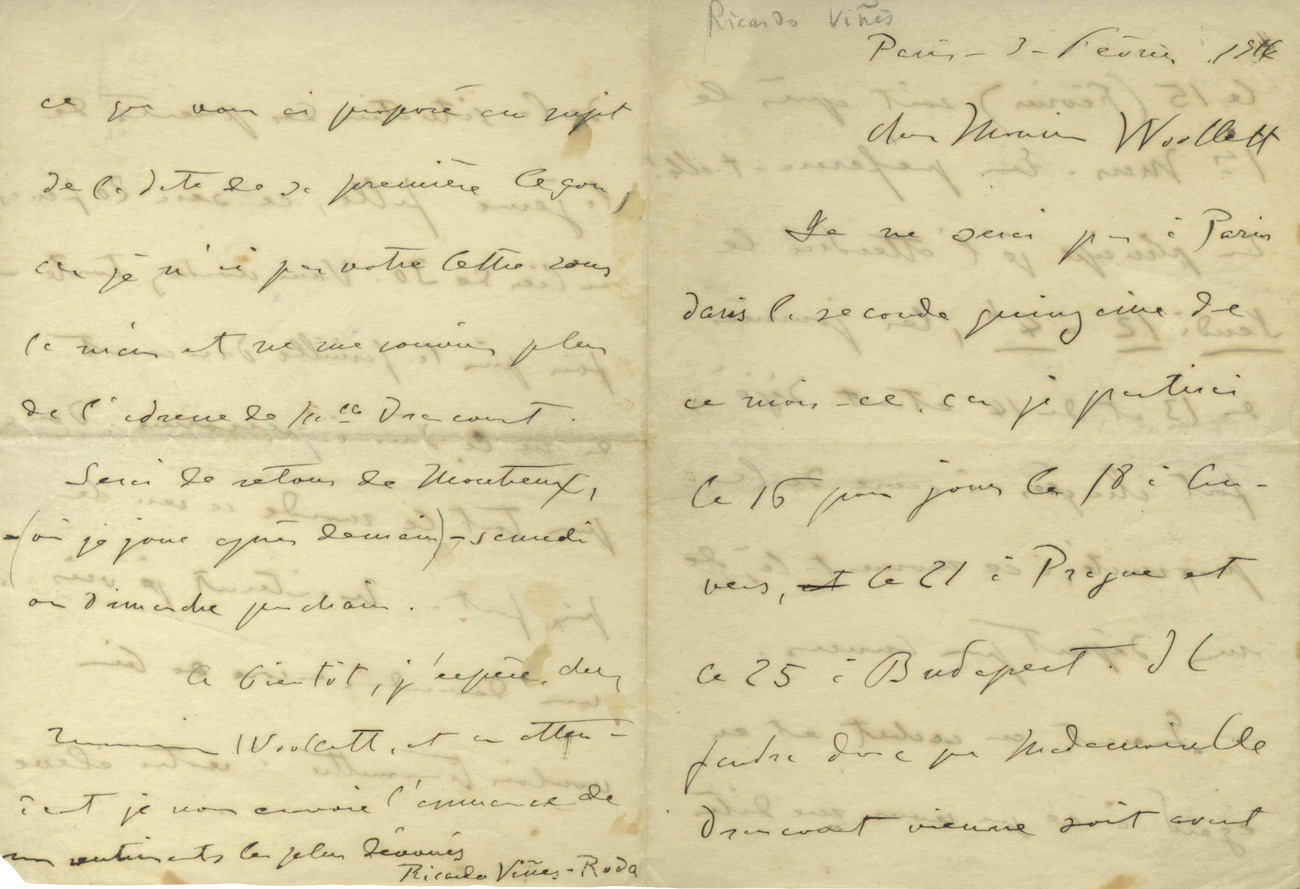 Ricardo Viñes
Paris - 3 - Février
cher Monsieur Woollett
Je ne serai pas à Paris
dans la seconde quinzaine de
ce mois-ci, car je partirai
le 16 pour jouer le 18 à An-
vers, et le 21 à Prague et
le 25 à Budapest. Il
faudra donc que Mademoiselle
Dracourt vienne soit avant
ce que vous ai proposé au sujet
de la date de sa première leçon,
car je n'ai pas votre lettre sous
la main et ne me souviens plus
de l'adresse de Melle Dracourt.
Serai de retour de Montreux,
(où je joue après demain) - samedi
ou Dimanche prochain.
A bientôt, j'espère, cher
monsieur Woollett, et en atten-
dant je vous envoie l'assurance de
mes sentiments les plus dévoués
Ricardo Viñes-Roda